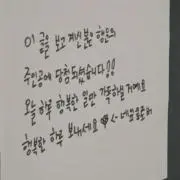 이 글을 보고 계신 분은 행운의
주인공에 당첨되셨습니다!!
오늘 하루 행복한 일만 가득하실 거예요
행복한 하루 보내세요 ♡ <- 네잎클로버